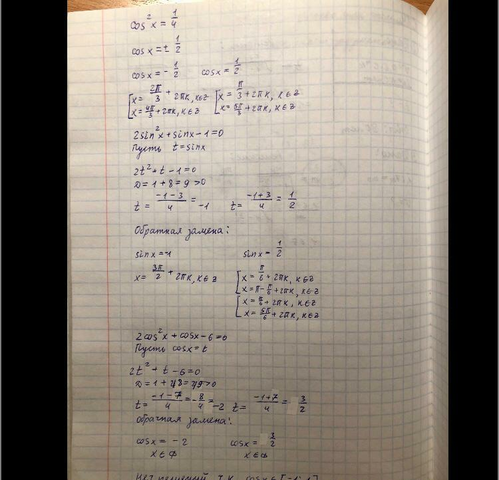 cos²x = 1/4
cosx = ± 1/2
cosx = - 1/2   cosx = 1/2
[x = 2π/3 + 2πk, k∈Z   [x = π/3 + 2πk, k∈Z
[x = 4π/3 + 2πk, k∈Z   [x = 5π/3 + 2πk, k∈Z
2sin²x + sinx - 1 = 0
Пусть t = sinx
2t² + t - 1 = 0
D = 1 + 8 = 9 > 0
t = (-1-3)/4 = -1   t = (-1+3)/4 = 1/2
Обратная замена:
sinx = -1   sinx = 1/2
x = 3π/2 + 2πk, k∈Z   [x = π/6 + 2πk, k∈Z
[x = π - π/6 + 2πk, k∈Z
[x = π/6 + 2πk, k∈Z
[x = 5π/6 + 2πk, k∈Z
2cos²x + cosx - 6 = 0
Пусть cosx = t
2t² + t - 6 = 0
D = 1 + 48 = 49 > 0
t = (-1-7)/4 = -8/4 = -2   t = (-1+7)/4 = 3/2
Обратная замена:
cosx = -2   cosx = 3/2
x∈∅   x∈∅
Нет решений, т.к. cosx∈[-1; 1]